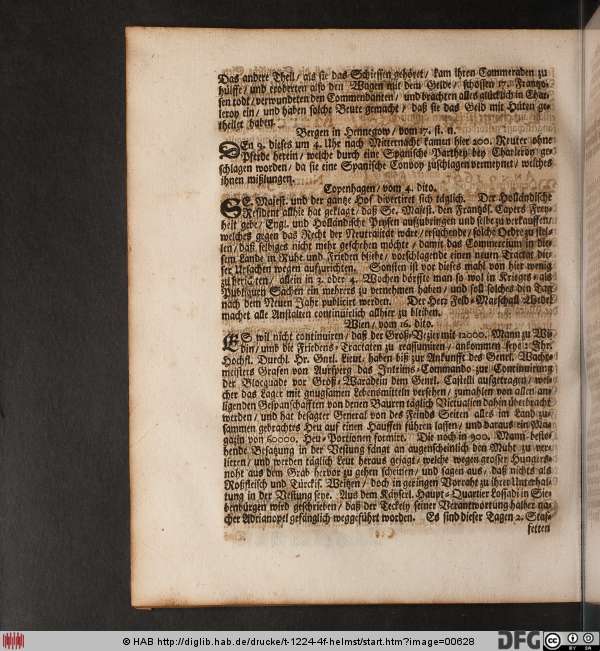 Das andere Theil / als sie das Schiessen gehöret / kam ihren Cammeraden zu
hülffe / und eroberten also den Wagen mit dem Gelde / schossen 17. Frantzo-
sen todt / verwundeten den Commendanten / und brachten alles glücklich in Char-
leroy ein / und haben solche Beute gemacht / daß sie das Geld mit Hüten ge-
theilet haben.
Bergen in Hennegow / vom 17. st. n.
DEn 9. dieses um 4. Uhr nach Mitternacht kamen hier 200. Reuter ohne
Pferde herein / welche durch eine Spanische Parthey bey Charleroy ge-
schlagen worden / da sie eine Spanische Convoy zuschlagen vermeynet / welches
ihnen mißlungen.
Copenhagen / vom 4. dito.
SE. Majest. und der gantze Hof divertiret sich täglich. Der Holländische
Resident allhie hat geklagt / daß Se. Majest. den Frantzös. Capers Frey-
heit gebe / Engl. und Holländische Prysen aufzubringen und selbe zu verkauffen /
welches gegen das Recht der Neutralität wäre / ersuchende / solche Ordre zu stel-
len / daß selbiges nicht mehr geschehen möchte / damit das Commercium in die-
sem Lande in Ruhe und Frieden bliebe / vorschlagende einen neuen Tractat die-
ser Ursachen wegen aufzurichten. Sonsten ist vor dieses mahl von hier wenig
zu berichten / allein in 3. oder 4. Wochen dörffte man so wol in Krieges- als
Publiquen Sachen ein mehrers zu vernehmen haben / und soll solches den Tag
nach dem Neuen Jahr publicirt werden. Der Herr Feld-Marschall Wedel
machet alle Anstalten continuirlich allhier zu bleiben.
Wien / vom 16. dito.
ES wil nicht continuiren / daß der Groß-Vezier mit 12000. Mann zu Wi-
din / umb die Friedens-Tractaten zu reassumiren / ankommen seye: Ihr.
Hochfl. Durchl. Hr. Gnrl. Lieut. haben biß zur Ankunfft des Genrl. Wacht-
meisters Grafen von Aursperg das Interims-Commando zur Continuirung
der Blocquade vor Groß-Waradein dem Genrl. Castelli aufgetragen / wel-
cher das Lager mit gnugsamen Lebensmitteln versehen / zumahlen von allen an-
ligenden Gespanschafften von denen Bauren täglich Victualien dahin überbracht
werden / und hat besagter General von des Feinds Seiten alles im Land zu-
sammen gebrachtes Heu auf einen Hauffen führen lassen / und daraus ein Ma-
gazin von 60000. Heu-Portionen formirt. Die noch in 900. Mann beste-
hende Besatzung in der Vestung fängt an augenscheinlich den Muht zu ver-
lieren / und werden täglich Leut heraus gejagt / welche wegen grosser Hungers-
noht aus dem Grab hervor zu gehen scheinen / und sagen aus / daß nichts als
Roßfleisch und Türckis. Weitzen / doch in geringen Vorraht zu ihrer Unterhal-
tung in der Vestung seye. Aus dem Käyserl. Haupt-Quartier Lossadi in Sie-
benbürgen wird geschrieben / daß der Teckely seiner Verantwortung halber na-
cher Adrianopel gefänglich weggeführt worden. Es sind dieser Tagen 2. Staf-
fetten
© HAB http://diglib.hab.de/drucke/t-1224-4f-helmst/start.htm?image=00628
DFG
CC BY SA